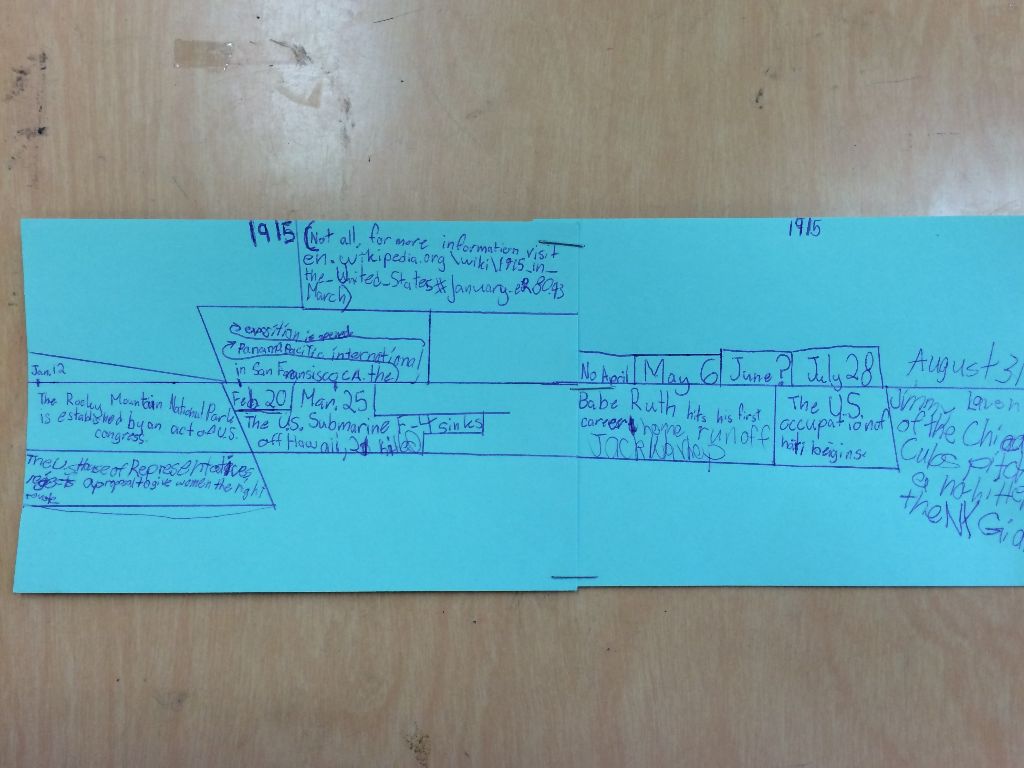 1915
(Not all, for more information visit
en.wikipedia.org\wiki\1915_in_
the_United_States#January-
March)
exposition is opened
Panama Pacific international
in San Fransisco, CA. the
Jan. 12
The Rocky Mountain National Park
is established by an act of U.S.
congress.
The U.S. House of Representatives
rejects a proposal to give women the right
to vote
Feb 20
Mar. 25
The U.S. Submarine F-4 sinks
off Hawaii, 21 killed
1915
No April
May 6
June?
July 28
August 31
Babe Ruth hits his first
career home run off
Jack Warhop
The U.S.
occupation of
hati begins.
Jimmy Laven
of the Chicag
Cubs pitch
a no-hitte
the NY Gia